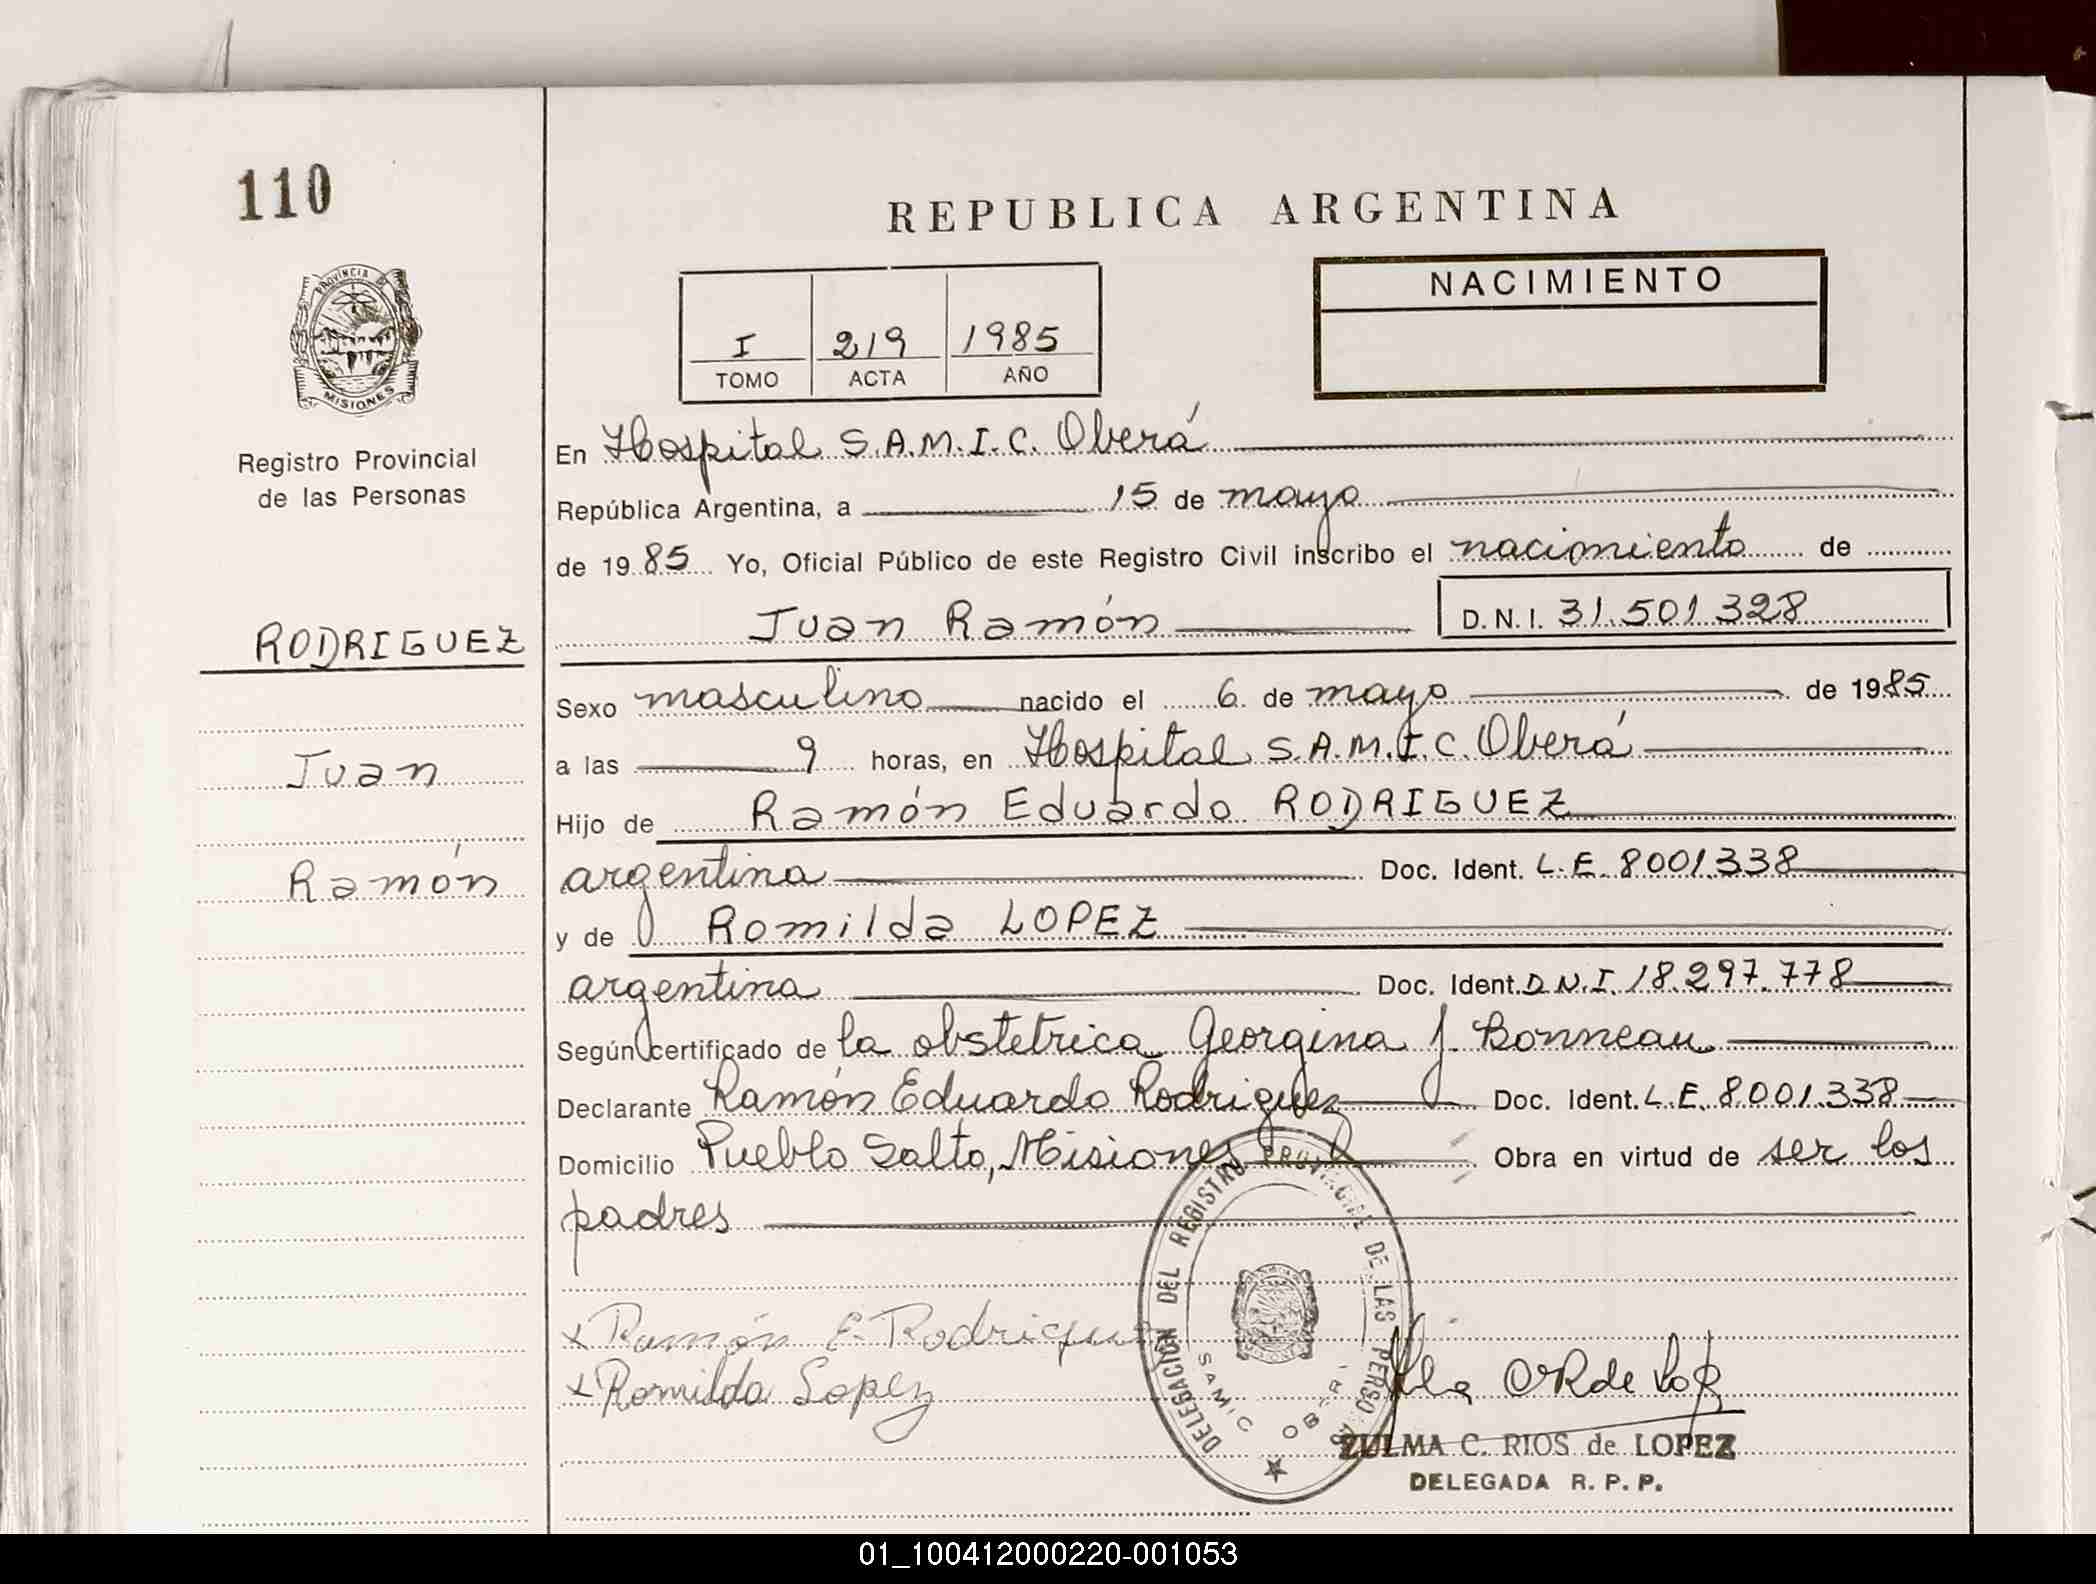 110
REPUBLICA ARGENTINA
PROVINCIA DE
MISIONES
NACIMIENTO
I 219 1985
TOMO ACTA AÑO
Registro Provincial
de las Personas
En Hospital S.A.M.I.C. Oberá
República Argentina, a 15 de mayo
de 1985 Yo, Oficial Público de este Registro Civil inscribo el nacimiento de
Juan Ramón D.N.I. 31.501.328
RODRIGUEZ
Juan
Ramón
Sexo masculino nacido el 6 de mayo de 1985
a las 9 horas, en Hospital S.A.M.I.C. Oberá
Hijo de Ramón Eduardo RODRIGUEZ
argentina Doc. Ident. L.E. 8001.338
y de Romilda LOPEZ
argentina Doc. Ident. D.N.I. 18.297.778
Según certificado de la obstetrica Georgina J. Bonneau
Declarante Ramón Eduardo Rodriguez Doc. Ident. L.E. 8.001.338
Domicilio Pueblo Salto, Misiones Obra en virtud de ser los
padres
x Ramón E. Rodriguez
x Romilda Lopez
DELEGACIÓN DEL REGISTRO PROVINCIAL DE LAS PERSO
SAMIC OBERÁ
ZULMA C. RIOS de LOPEZ
DELEGADA R. P. P.
01_100412000220-001053